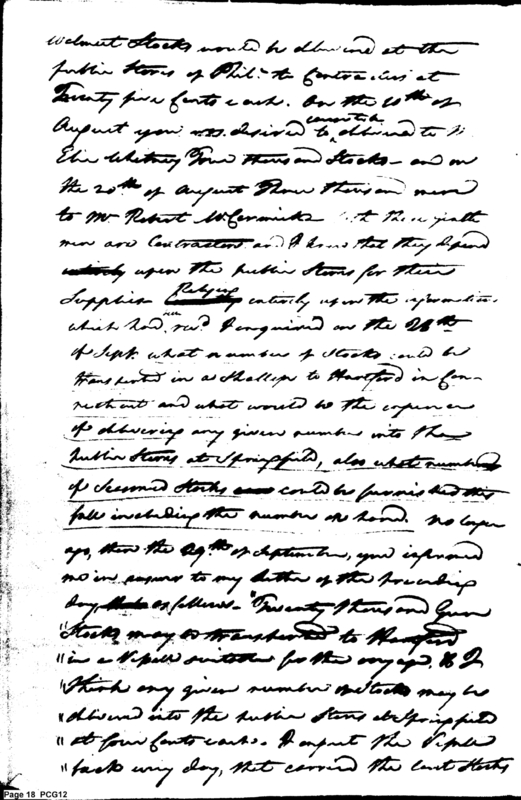 Walnut Stocks would be delivered at the
public Stores of Phila. the Contractors at
Twenty five Cents each. On the 10th of
August you was desired to cause to be delivered to
Eli Whitney Four thousand Stocks - and on
the 20th of August Three thousand more
to Mr Robert McCormick both these gentle
men are Contractors and I know that they depend
upon the public Stores for their
Supplies Relying entirely upon the information
which had been recd I enquired on the 28th
of Sept. what number of Stocks could be
transported in a Shallop to Hartford in Con-
necticut and what would be the expence
of delivering any given number into the
public Stores at Springfield, also what number
of Seasoned Stocks could be furnished this
fall including the number on hand. No longer
ago, than the 29th of September, you informed
me in answer to my letter of the preceding
day as follows - "Twenty thousand Gun
"Stocks may be transported to Hartford
"in a Vessell suitable for the voyage, & I
"think any given number of Stocks may be
"delivered into the public Stores at Springfield
"at four Cents each. I expect the Vessell
"back every day, that carried the last Stocks
Page 18 PCG12